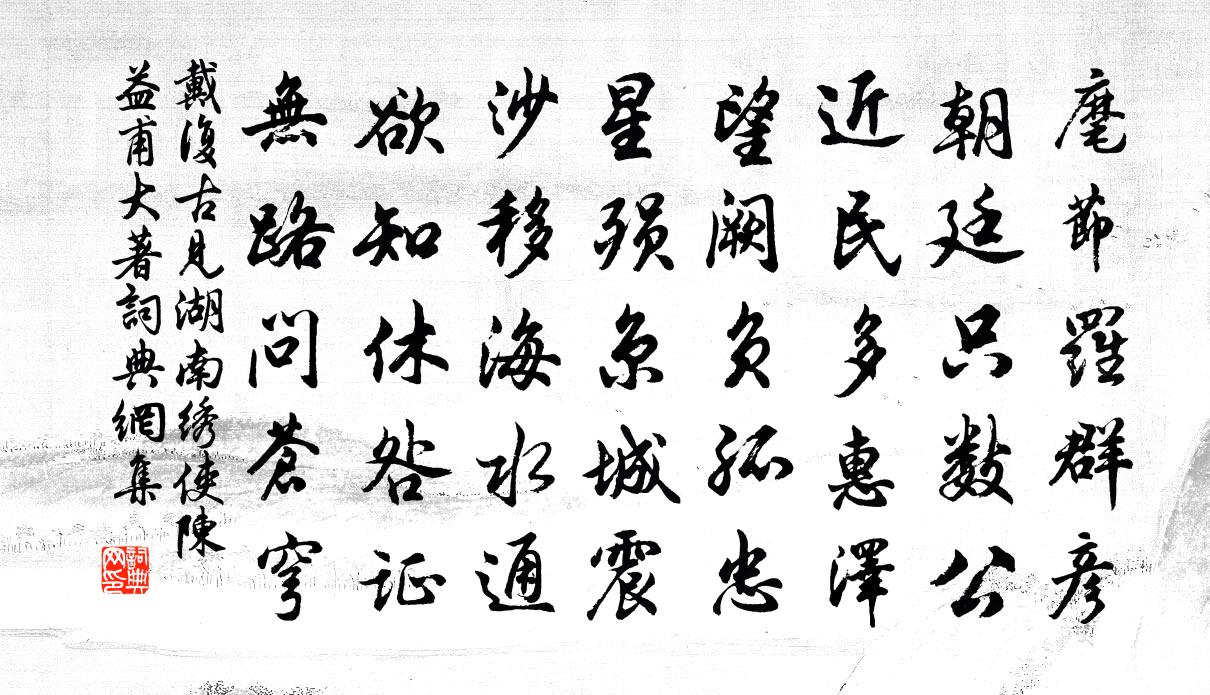 麾節羅群彥
朝廷只數公
近民多惠澤
望闕負孤忠
星殞京城震
沙移海水通
欲知休咎証
無路問蒼穹
戴復古見湖南绣使陳
益甫大著詞典網集
詞典网印